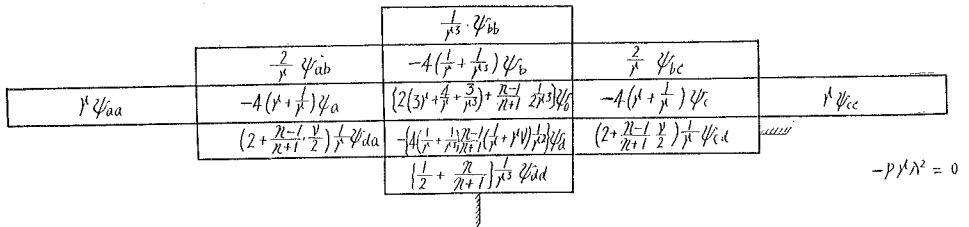 1/μ³ · ψ_bb
2/μ ψ_ab   −4(1/μ + 1/μ³)ψ_b   2/μ ψ_bc
μ ψ_aa   −4(μ + 1/μ)ψ_a   {2(3μ + 4/μ + 3/μ³) + (n−1)/(n+1) · 1/2μ³}ψ_o   −4(μ + 1/μ)ψ_c   μ ψ_cc
(2 + (n−1)/(n+1) · ν/2) 1/μ ψ_da   −{4(1/μ + 1/μ³) (n−1)/(n+1) (1/μ + μν) 1/μ²}ψ_d   (2 + (n−1)/(n+1) ν/2) 1/μ ψ_cd
{1/2 + n/(n+1)} 1/μ³ ψ_dd
−pμλ² = 0